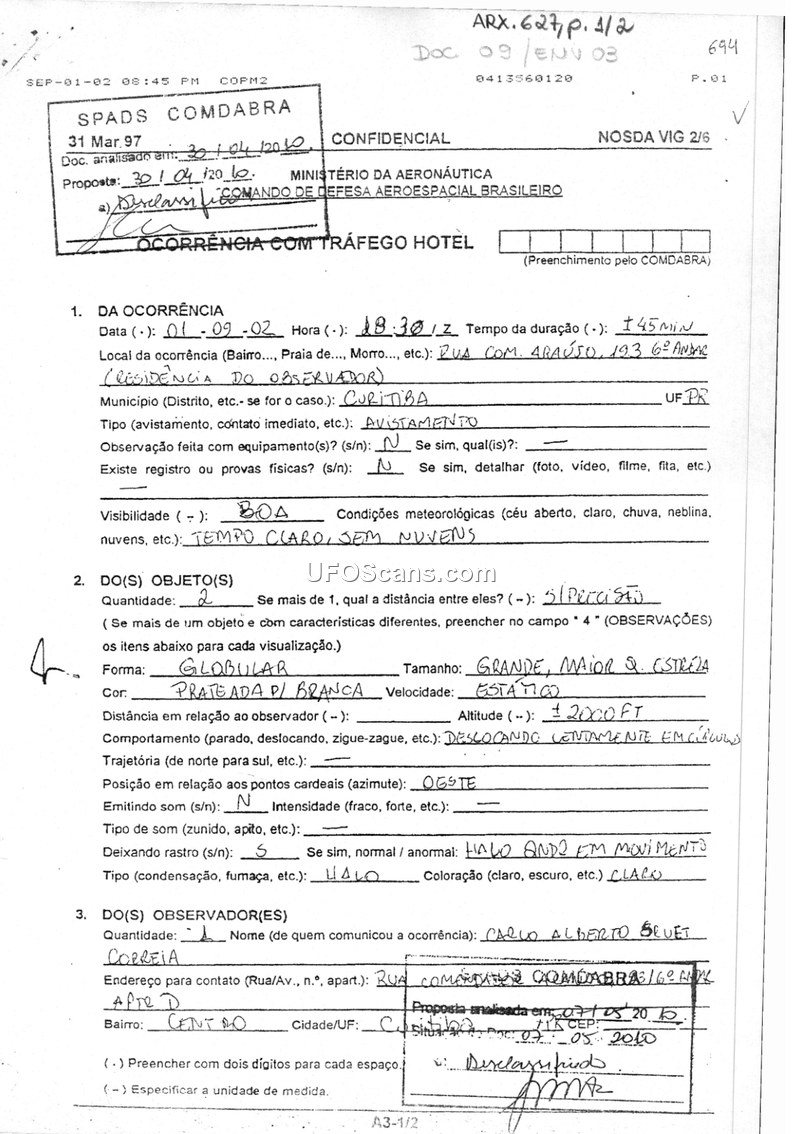 ARX. 627, p. 1/2
DOC 09/ENV 03
694
SEP-01-02 08:45 PM COPM2 0413560120 P.01
SPADS COMDABRA
31 Mar 97 CONFIDENCIAL NOSDA VIG 2/6
Doc. analisado em: 30/04/2010.
Proposta: 30/04/2010. MINISTÉRIO DA AERONÁUTICA
COMANDO DE DEFESA AEROESPACIAL BRASILEIRO
a) Desclassificado
OCORRÊNCIA COM TRÁFEGO HOTEL
(Preenchimento pelo COMDABRA)
1. DA OCORRÊNCIA
Data ( - ): 01 - 09 - 02 Hora ( - ): 18:30 / Z Tempo da duração ( - ): ± 45 MIN
Local da ocorrência (Bairro..., Praia de..., Morro..., etc.): RUA COM. ARAÚJO, 193 6º ANDAR
(RESIDÊNCIA DO OBSERVADOR)
Município (Distrito, etc.- se for o caso.): CURITIBA UF PR
Tipo (avistamento, contato imediato, etc.): AVISTAMENTO
Observação feita com equipamento(s)? (s/n): N Se sim, qual(is)?: —
Existe registro ou provas físicas? (s/n): N Se sim, detalhar (foto, vídeo, filme, fita, etc.)
—
Visibilidade ( – ): BOA Condições meteorológicas (céu aberto, claro, chuva, neblina,
nuvens, etc.): TEMPO CLARO, SEM NUVENS
UFOScans.com
2. DO(S) OBJETO(S)
Quantidade: 2 Se mais de 1, qual a distância entre eles? ( – ): S/PRECISÃO
( Se mais de um objeto e com características diferentes, preencher no campo " 4 " (OBSERVAÇÕES)
os itens abaixo para cada visualização.)
Forma: GLOBULAR Tamanho: GRANDE, MAIOR Q. ESTRELA
Cor: PRATEADA P/ BRANCA Velocidade: ESTÁTICO
Distância em relação ao observador ( – ): Altitude ( – ): ± 2000 FT
Comportamento (parado, deslocando, zigue-zague, etc.): DESLOCANDO LENTAMENTE EM CÍRCULO
Trajetória (de norte para sul, etc.): —
Posição em relação aos pontos cardeais (azimute): OESTE
Emitindo som (s/n): N Intensidade (fraco, forte, etc.): —
Tipo de som (zunido, apito, etc.): —
Deixando rastro (s/n): S Se sim, normal / anormal: HALO QNDO EM MOVIMENTO
Tipo (condensação, fumaça, etc.): HALO Coloração (claro, escuro, etc.) CLARO
3. DO(S) OBSERVADOR(ES)
Quantidade: 1 Nome (de quem comunicou a ocorrência): CARLO ALBERTO
CORREIA
Endereço para contato (Rua/Av., n.º, apart.): RUA 6º ANDAR
APTO D
COMDABRA
Proposta analisada em: 07/05 2010
Bairro: CENTRO Cidade/UF: Curitiba CEP:
Doc: 07 . 05 . 2010
( - ) Preencher com dois dígitos para cada espaço.
Desclassificado
( – ) Especificar a unidade de medida.
A3-1/2